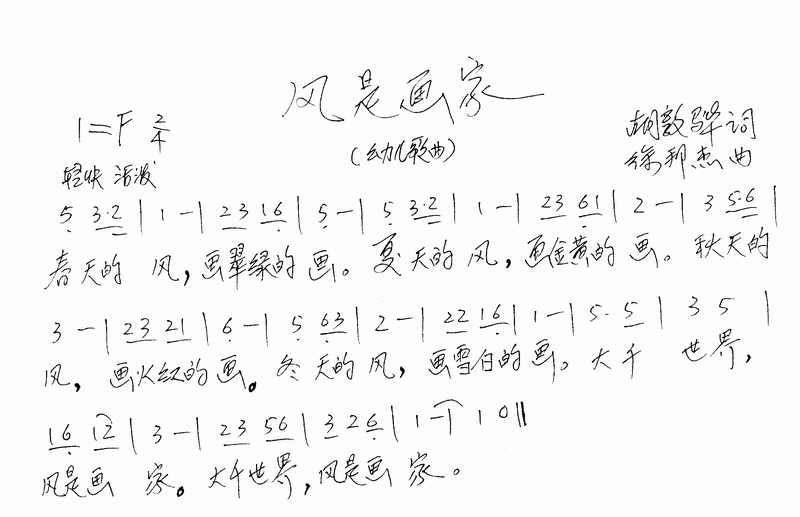 风是画家
1=F 2/4
(幼儿歌曲)
胡敦骅 词
轻快 活泼
徐邦杰 曲
5 3·2 | 1 - | 23 16 | 5 - | 5 3·2 | 1 - | 23 61 | 2 - | 3 5·6 |
春天的 风，画翠绿的 画。夏天的 风，画金黄的 画。秋天的
3 - | 23 21 | 6 - | 5 63 | 2 - | 22 16 | 1 - | 5· 5 | 3 5 |
风，画火红的画。冬天的风，画雪白的画。大千 世界，
16 12 | 3 - | 23 56 | 3 26 | 1 - | 1 0 ||
风是画 家。大千世界，风是画 家。